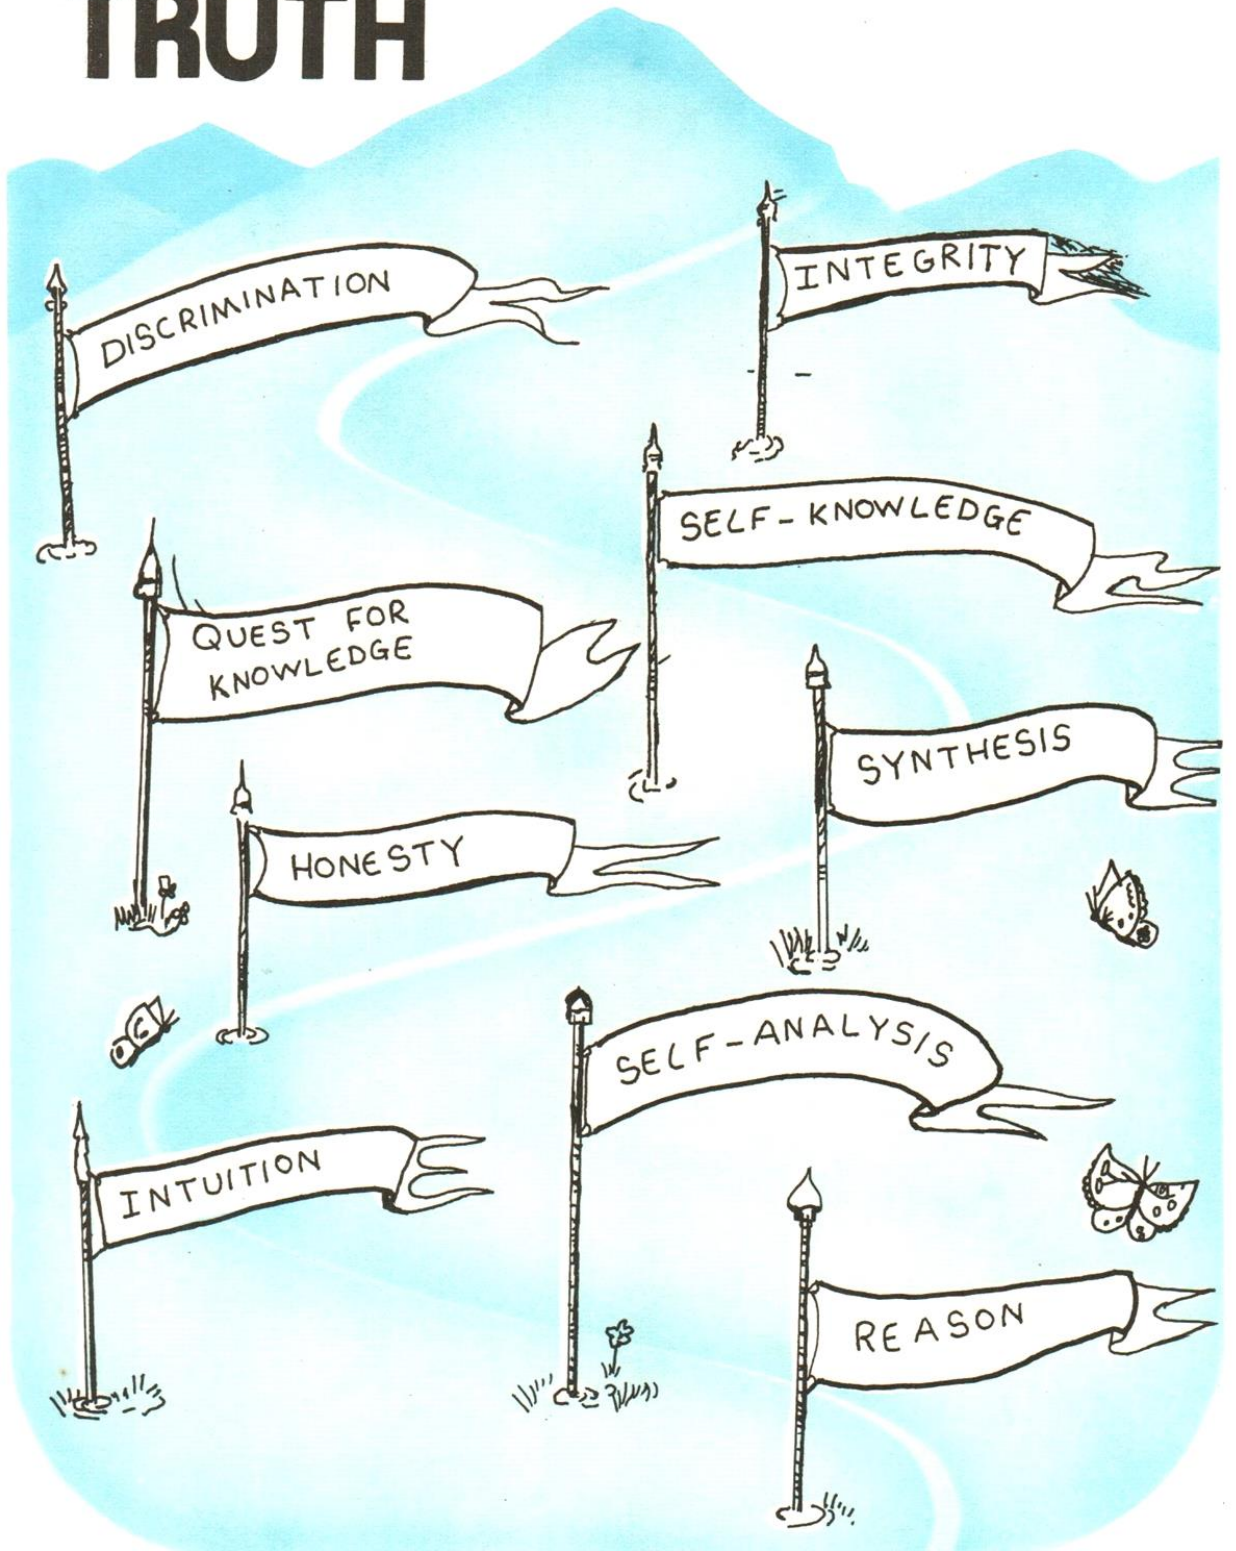 TRUTH
INTEGRITY
DISCRIMINATION
SELF-KNOWLEDGE
QUEST FOR
KNOWLEDGE
SYNTHESIS
HONESTY
SELF-ANALYSIS
INTUITION
REASON